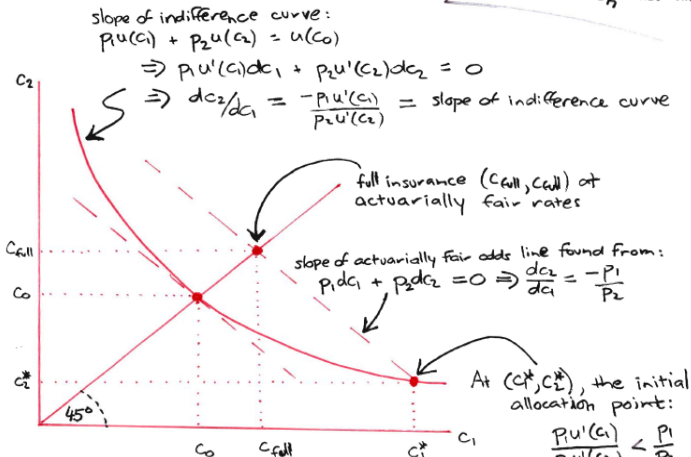 slope of indifference curve:
p₁u(c₁) + p₂u(c₂) = u(c₀)
⇒ p₁u'(c₁)dc₁ + p₂u'(c₂)dc₂ = 0
⇒ dc₂/dc₁ = -p₁u'(c₁) / p₂u'(c₂) = slope of indifference curve
C₂
full insurance (Cfull, Cfull) at
actuarially fair rates
Cfull
slope of actuarially fair odds line found from:
p₁dc₁ + p₂dc₂ = 0 ⇒ dc₂/dc₁ = -p₁/p₂
C₀
C₂*
At (C₁*, C₂*), the initial
allocation point:
45°
p₁u'(c₁) < p₁
C₀ Cfull C₁* C₁